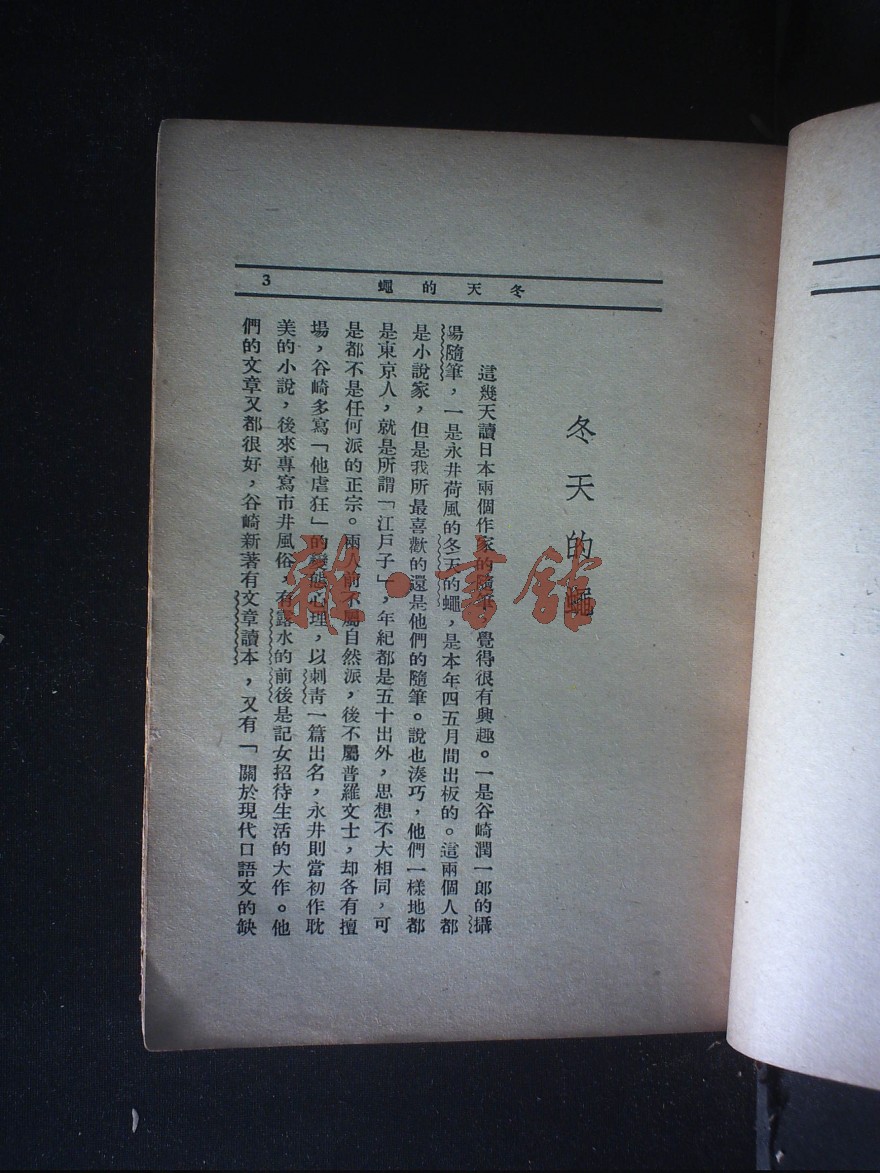 冬天的蠅
3
冬天的蠅
這幾天讀日本兩個作家的隨筆，覺得很有興趣。一是谷崎潤一郎的攝
陽隨筆，一是永井荷風的冬天的蠅，是本年四五月間出板的。這兩個人都
是小說家，但是我所最喜歡的還是他們的隨筆。說也湊巧，他們一樣地都
是東京人，就是所謂「江戶子」，年紀都是五十出外，思想不大相同，可
是都不是任何派的正宗。兩人前不屬自然派，後不屬普羅文士，却各有擅
場，谷崎多寫「他虐狂」的變態心理，以刺靑一篇出名，永井則當初作耽
美的小說，後來專寫市井風俗，有露水的前後是記女招待生活的大作。他
們的文章又都很好，谷崎新著有文章讀本，又有「關於現代口語文的缺
雜·書館